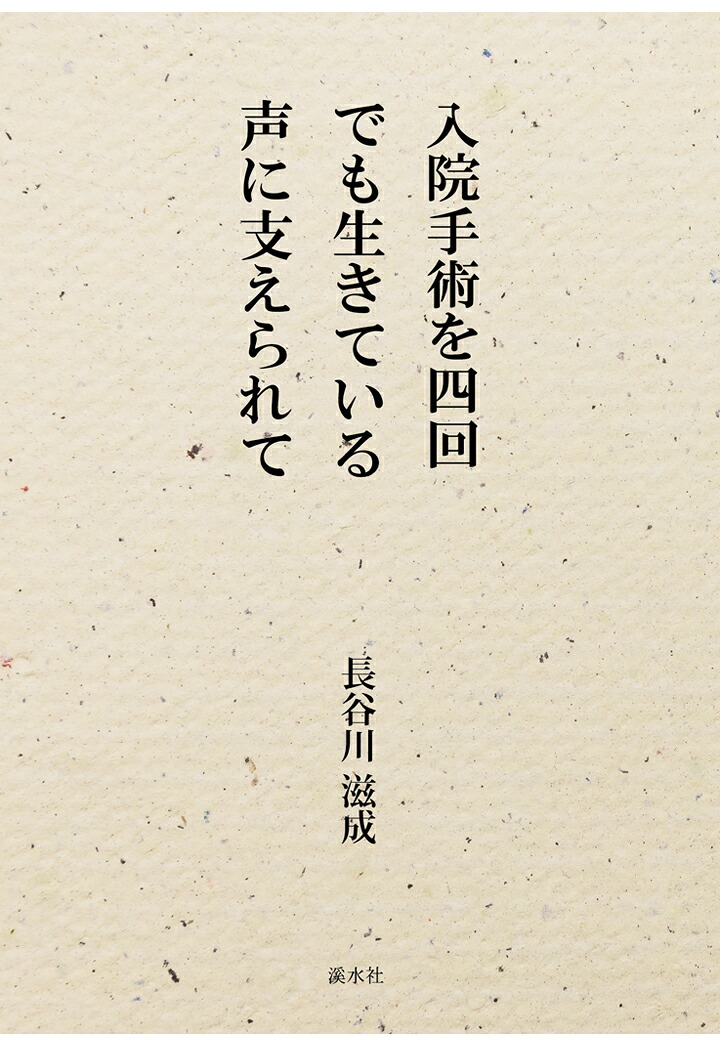 入院手術を四回
でも生きている
声に支えられて
長谷川 滋成
溪水社